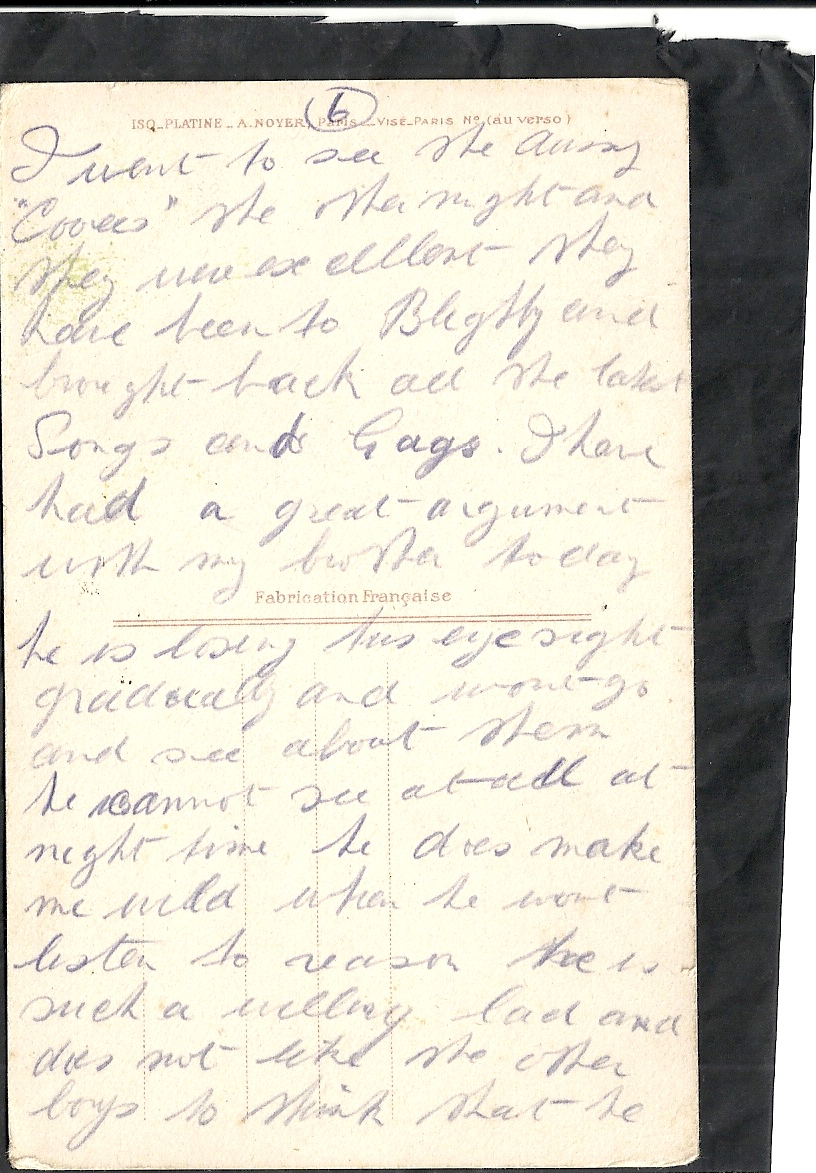 6
ISO_PLATINE _ A.NOYER, PARIS _ VISÉ_PARIS Nº (au verso)
I went to see the Aussy
"Cooees" the other night and
they were excelllent they
have been to Blighty and
brought back all the latest
Songs and Gags. I have
had a great argument
with my brother today
Fabrication Française
he is losing his eyesight
gradually and wont go
and see about them
he cannot see at all at
night time he does make
me wild when he wont
listen to reason he is
such a willing lad and
does not like the other
boys to think that he